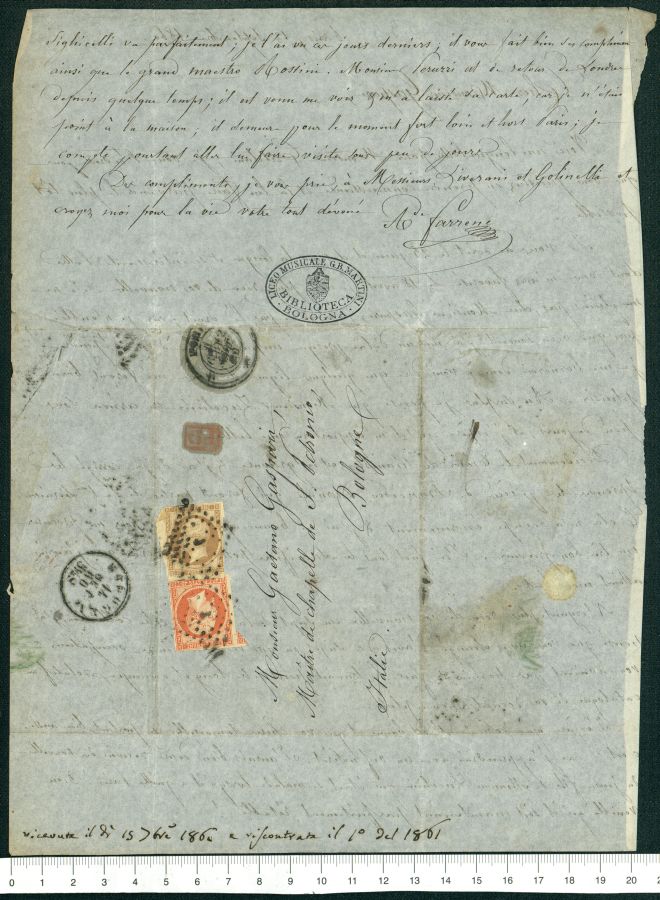 Sighicelli va parfaitement; je l'ai vu ces jours derniers; il vous fait bien des complimens
ainsi que le grand maestro Rossini. Monsieur Peruzzi est de retour de Londres
depuis quelque temps; il est venu me voir et m'a laissé sa carte, car je n'étais
point à la maison; il demeure pour le moment fort loin et hors Paris; je
compte pourtant aller lui faire visite sous peu de jours.
Des compliments, je vous prie, à Messieurs Liverani et Golinelli et
croyez moi pour la vie votre tout dévoué
A.de Farrenc
LICEO MUSICALE G.B. MARTINI
BIBLIOTECA
BOLOGNA
Monsieur Gaetano Gaspari,
Maître de chapelle de S. Petronio,
Bologne
Italie.
BOLOGNA
ricevuta il dì 15 7bre 1860 e riscontrata il 1º del 1861
0 1 2 3 4 5 6 7 8 9 10 11 12 13 14 15 16 17 18 19 20